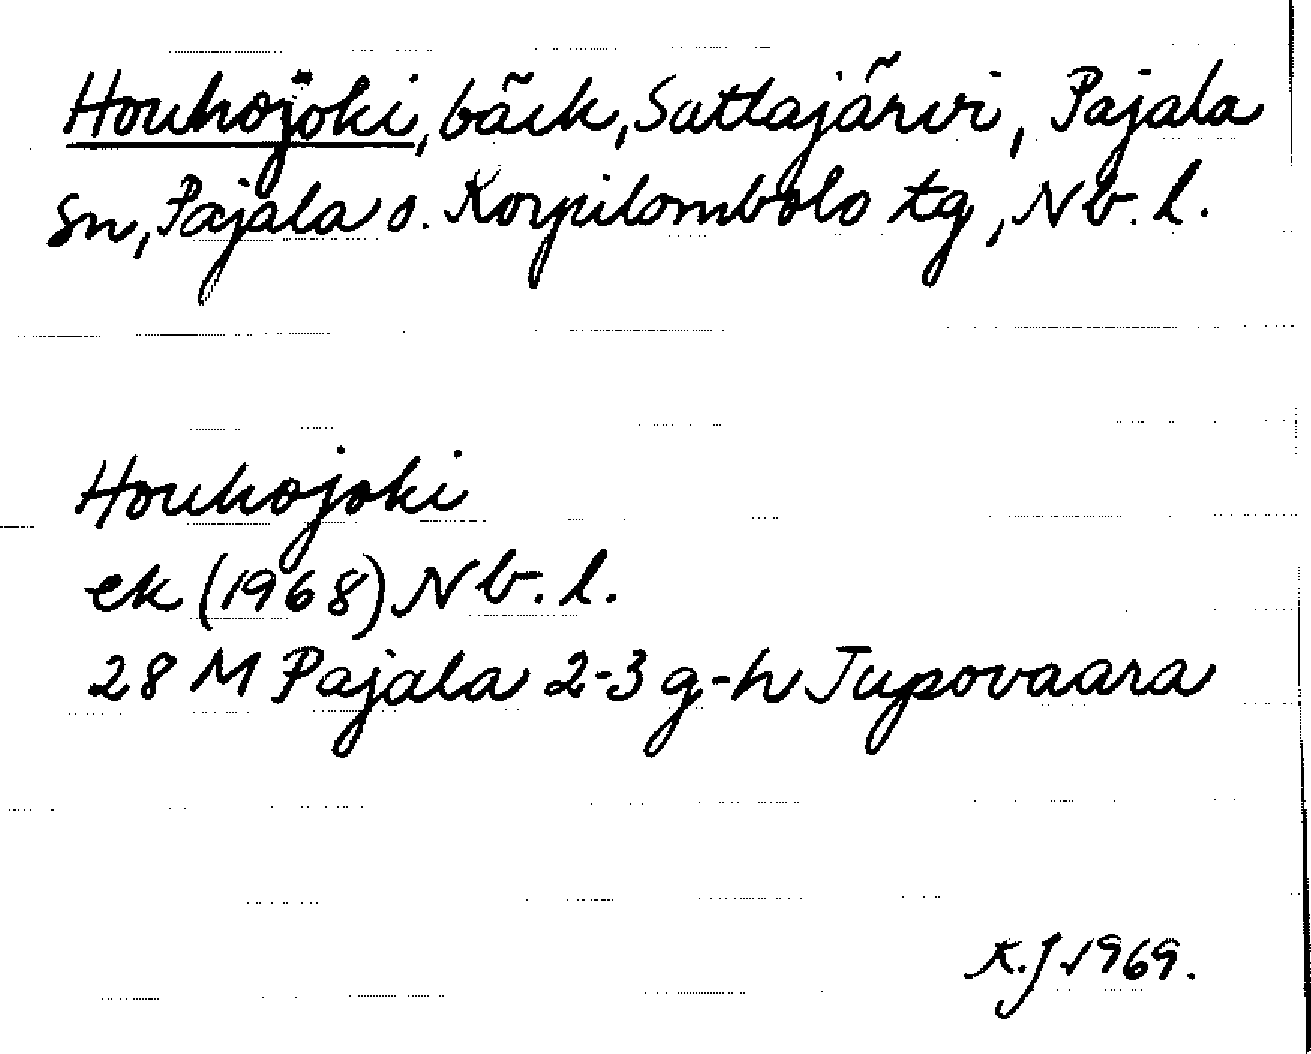 Houhojoki, bäck, Sattajärvi, Pajala
sn, Pajala o. Korpilombolo tg, Nb. l.
Houhojoki
ek (1968) Nb. l.
28 M Pajala 2-3 g-h Jupovaara
K.J 1969.